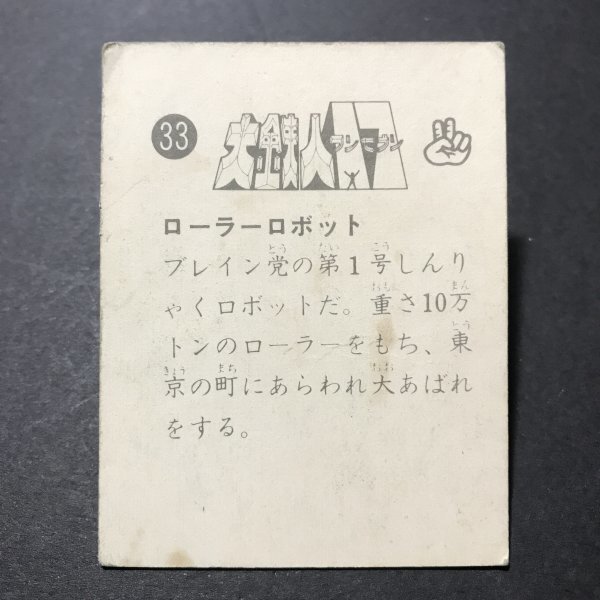 33
大鉄人17
ワンセブン
ローラーロボット
ブレイン党の第1号しんり
ゃくロボットだ。重さ10万
トンのローラーをもち、東
京の町にあらわれ大あばれ
をする。